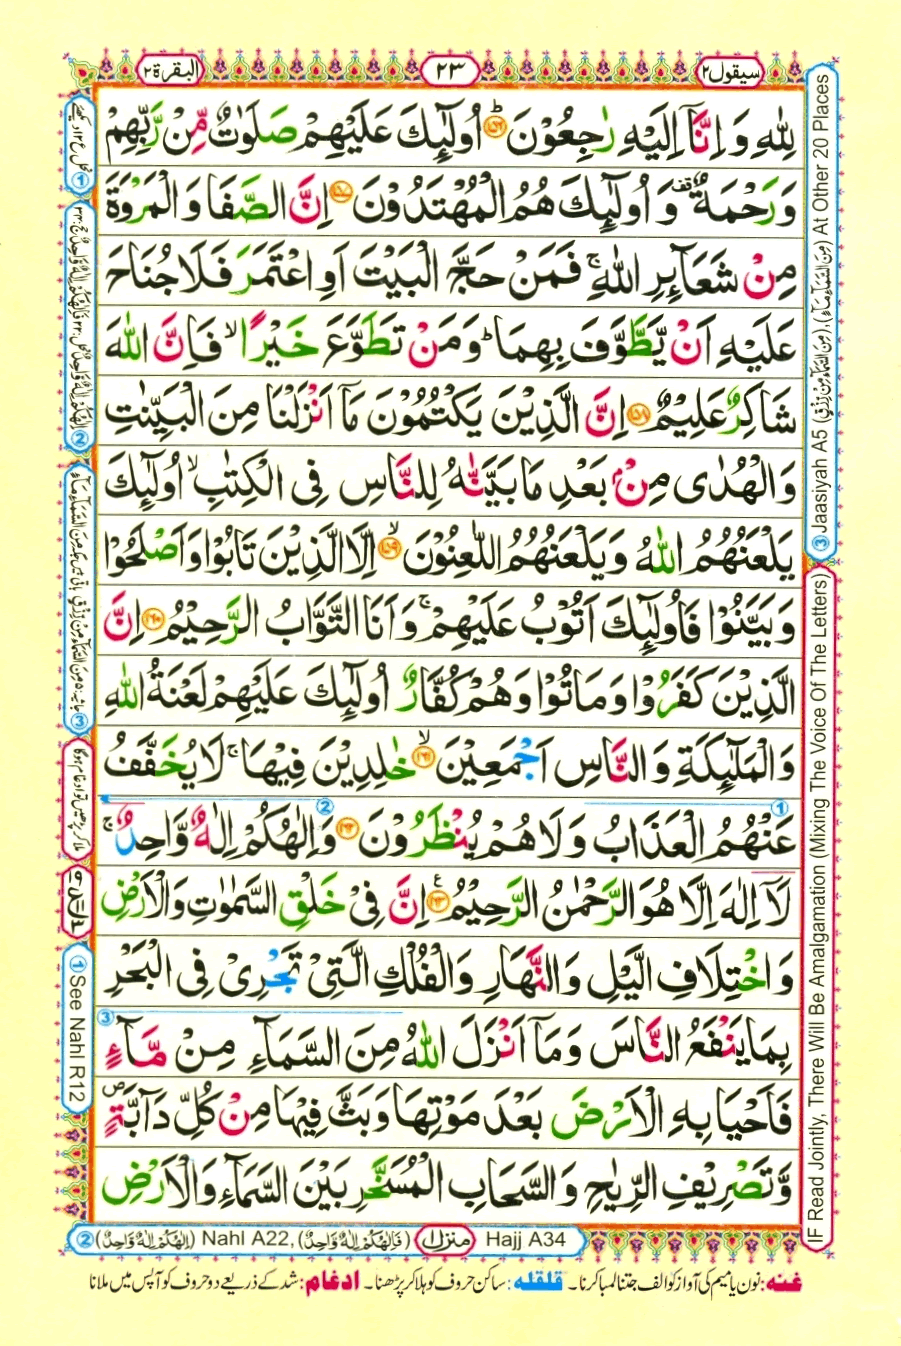 سيقول٢
٢٣
البقرة٢
لِلّٰهِ وَ اِنَّاۤ اِلَيْهِ رٰجِعُوْنَ ؕ﴿۱۵۶﴾ اُولٰٓئِكَ عَلَيْهِمْ صَلَوٰتٌ مِّنْ رَّبِّهِمْ
وَ رَحْمَةٌ ۫ وَ اُولٰٓئِكَ هُمُ الْمُهْتَدُوْنَ ﴿۱۵۷﴾ اِنَّ الصَّفَا وَ الْمَرْوَةَ
مِنْ شَعَآئِرِ اللّٰهِ ۚ فَمَنْ حَجَّ الْبَيْتَ اَوِ اعْتَمَرَ فَلَا جُنَاحَ
عَلَيْهِ اَنْ يَّطَّوَّفَ بِهِمَا ؕ وَ مَنْ تَطَوَّعَ خَيْرًا ۙ فَاِنَّ اللّٰهَ
شَاكِرٌ عَلِيْمٌ ﴿۱۵۸﴾ اِنَّ الَّذِيْنَ يَكْتُمُوْنَ مَاۤ اَنْزَلْنَا مِنَ الْبَيِّنٰتِ
وَالْهُدٰى مِنْۢ بَعْدِ مَا بَيَّنّٰهُ لِلنَّاسِ فِى الْكِتٰبِ ۙ اُولٰٓئِكَ
يَلْعَنُهُمُ اللّٰهُ وَيَلْعَنُهُمُ اللّٰعِنُوْنَ ۙ﴿۱۵۹﴾ اِلَّا الَّذِيْنَ تَابُوْا وَاَصْلَحُوْا
وَ بَيَّنُوْا فَاُولٰٓئِكَ اَتُوْبُ عَلَيْهِمْ ۚ وَ اَنَا التَّوَّابُ الرَّحِيْمُ ﴿۱۶۰﴾ اِنَّ
الَّذِيْنَ كَفَرُوْا وَ مَاتُوْا وَ هُمْ كُفَّارٌ اُولٰٓئِكَ عَلَيْهِمْ لَعْنَةُ اللّٰهِ
وَالْمَلٰٓئِكَةِ وَ النَّاسِ اَجْمَعِيْنَ ۙ﴿۱۶۱﴾ خٰلِدِيْنَ فِيْهَا ۚ لَا يُخَفَّفُ
عَنْهُمُ الْعَذَابُ وَ لَا هُمْ يُنْظَرُوْنَ ﴿۱۶۲﴾ وَ اِلٰهُكُمْ اِلٰهٌ وَّاحِدٌ ۚ
لَاۤ اِلٰهَ اِلَّا هُوَ الرَّحْمٰنُ الرَّحِيْمُ ﴿۱۶۳﴾ اِنَّ فِىْ خَلْقِ السَّمٰوٰتِ وَالْاَرْضِ
وَ اخْتِلَافِ الَّيْلِ وَ النَّهَارِ وَ الْفُلْكِ الَّتِىْ تَجْرِىْ فِى الْبَحْرِ
بِمَا يَنْفَعُ النَّاسَ وَ مَاۤ اَنْزَلَ اللّٰهُ مِنَ السَّمَآءِ مِنْ مَّآءٍ
فَاَحْيَا بِهِ الْاَرْضَ بَعْدَ مَوْتِهَا وَ بَثَّ فِيْهَا مِنْ كُلِّ دَآبَّةٍ ۪
وَّ تَصْرِيْفِ الرِّيٰحِ وَ السَّحَابِ الْمُسَخَّرِ بَيْنَ السَّمَآءِ وَالْاَرْضِ
③ Jaasiyah A5 (مِنَ السَّمَآءِ مِنْ رِّزْقٍ), (مِنَ السَّمَآءِ مَآءً) At Other 20 Places
IF Read Jointly, There Will Be Amalgamation (Mixing The Voice Of The Letters)
① See Nahl R12
② (اِلٰهُكُمْ اِلٰهٌ وَّاحِدٌ) Nahl A22, (فَاِلٰهُكُمْ اِلٰهٌ وَّاحِدٌ) Hajj A34
منزل ١
غنه: نون یا میم کی آواز کو الف جتنا لمبا کرنا۔ قلقله: ساکن حروف کو ہلا کر پڑھنا۔ ادغام: شد کے ذریعے دو حروف کو آپس میں ملانا